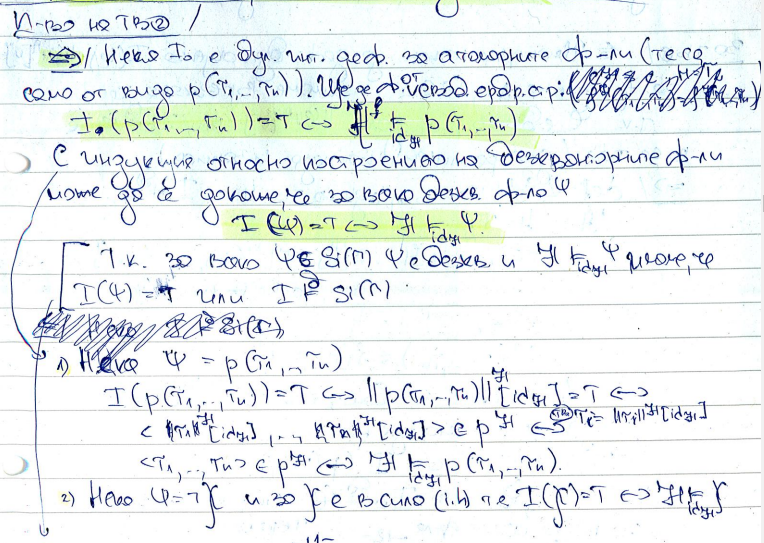 П-во на ТВ②
⇒/ Нека I₀ е бул. инт. деф. за атомарните ф-ли (те са
само от вида p(τ₁,…,τₙ)). Ще деф. ербр. стр:
I₀(p(τ₁,…,τₙ))=T ↔ ℋ ⊨ p(τ₁,…,τₙ)
idℋ
С индукция относно построението на безкванторните ф-ли
може да се докаже, че за всяка безкв. ф-ла Ψ
I(Ψ)=T ↔ ℋ ⊨ Ψ.
idℋ
Т.к. за всяко Ψ∈Si(Γ) Ψ е безкв. и ℋ ⊨ Ψ имаме, че
idℋ
I(Ψ)=T или I ⊨ Si(Γ).
1) Нека Ψ = p(τ₁,…,τₙ)
I(p(τ₁,…,τₙ))=T ↔ ||p(τ₁,…,τₙ)||^ℋ[idℋ]=T ↔
<||τ₁||^ℋ[idℋ],…,||τₙ||^ℋ[idℋ]> ∈ p^ℋ ↔ τᵢ=||τᵢ||^ℋ[idℋ]
<τ₁,…,τₙ> ∈ p^ℋ ↔ ℋ ⊨ p(τ₁,…,τₙ).
idℋ
2) Нека Ψ=¬χ и за χ е в сила (i.h) че I(χ)=T ↔ ℋ ⊨ χ
idℋ